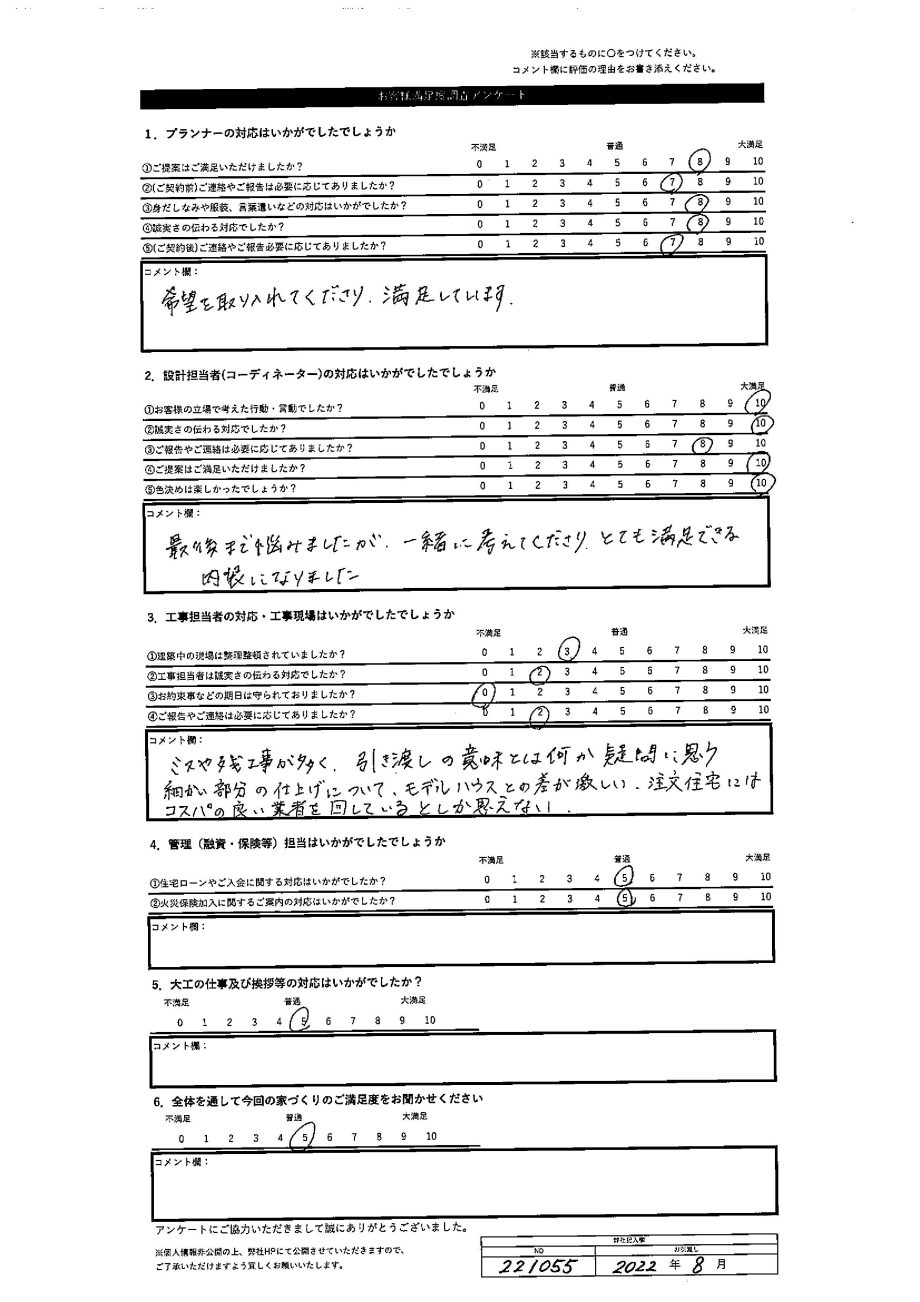 ※該当するものに〇をつけてください。
コメント欄に評価の理由をお書き添えください。
お客様満足度調査アンケート
1．プランナーの対応はいかがでしたでしょうか
不満足 普通 大満足
①ご提案はご満足いただけましたか？ 0 1 2 3 4 5 6 7 8 9 10
②(ご契約前)ご連絡やご報告は必要に応じてありましたか？ 0 1 2 3 4 5 6 7 8 9 10
③身だしなみや服装、言葉遣いなどの対応はいかがでしたか？ 0 1 2 3 4 5 6 7 8 9 10
④誠実さの伝わる対応でしたか？ 0 1 2 3 4 5 6 7 8 9 10
⑤(ご契約後)ご連絡やご報告必要に応じてありましたか？ 0 1 2 3 4 5 6 7 8 9 10
コメント欄：
希望を取り入れてくださり、満足しています。
2．設計担当者(コーディネーター)の対応はいかがでしたでしょうか
不満足 普通 大満足
①お客様の立場で考えた行動・言動でしたか？ 0 1 2 3 4 5 6 7 8 9 10
②誠実さの伝わる対応でしたか？ 0 1 2 3 4 5 6 7 8 9 10
③ご報告やご連絡は必要に応じてありましたか？ 0 1 2 3 4 5 6 7 8 9 10
④ご提案はご満足いただけましたか？ 0 1 2 3 4 5 6 7 8 9 10
⑤色決めは楽しかったでしょうか？ 0 1 2 3 4 5 6 7 8 9 10
コメント欄：
最後まで悩みましたが、一緒に考えてくださり、とても満足できる
内装になりました
3．工事担当者の対応・工事現場はいかがでしたでしょうか
不満足 普通 大満足
①建築中の現場は整理整頓されていましたか？ 0 1 2 3 4 5 6 7 8 9 10
②工事担当者は誠実さの伝わる対応でしたか？ 0 1 2 3 4 5 6 7 8 9 10
③お約束事などの期日は守られておりましたか？ 0 1 2 3 4 5 6 7 8 9 10
④ご報告やご連絡は必要に応じてありましたか？ 0 1 2 3 4 5 6 7 8 9 10
コメント欄：
ミスや残工事が多く、引き渡しの意味とは何か疑問に思う
細かい部分の仕上げについて、モデルハウスとの差が激しい。注文住宅には
コスパの良い業者を回しているとしか思えない。
4．管理（融資・保険等）担当はいかがでしたでしょうか
不満足 普通 大満足
①住宅ローンやご入会に関する対応はいかがでしたか？ 0 1 2 3 4 5 6 7 8 9 10
②火災保険加入に関するご案内の対応はいかがでしたか？ 0 1 2 3 4 5 6 7 8 9 10
コメント欄：
5．大工の仕事及び挨拶等の対応はいかがでしたか？
不満足 普通 大満足
0 1 2 3 4 5 6 7 8 9 10
コメント欄：
6．全体を通して今回の家づくりのご満足度をお聞かせください
不満足 普通 大満足
0 1 2 3 4 5 6 7 8 9 10
コメント欄：
アンケートにご協力いただきまして誠にありがとうございました。
※個人情報非公開の上、弊社HPにて公開させていただきますので、
ご了承いただけますよう宜しくお願いいたします。
弊社記入欄
NO お引渡し
221055 2022 年 8 月